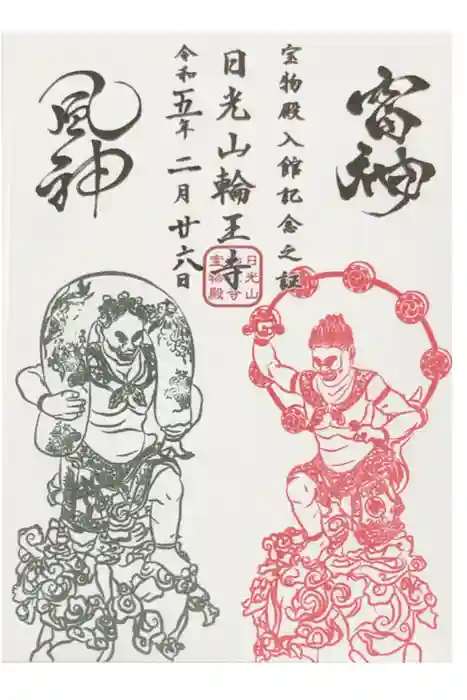 雷神
宝物殿入館記念之証
日光山輪王寺
令和五年二月廿六日
風神
日光山
宝物殿